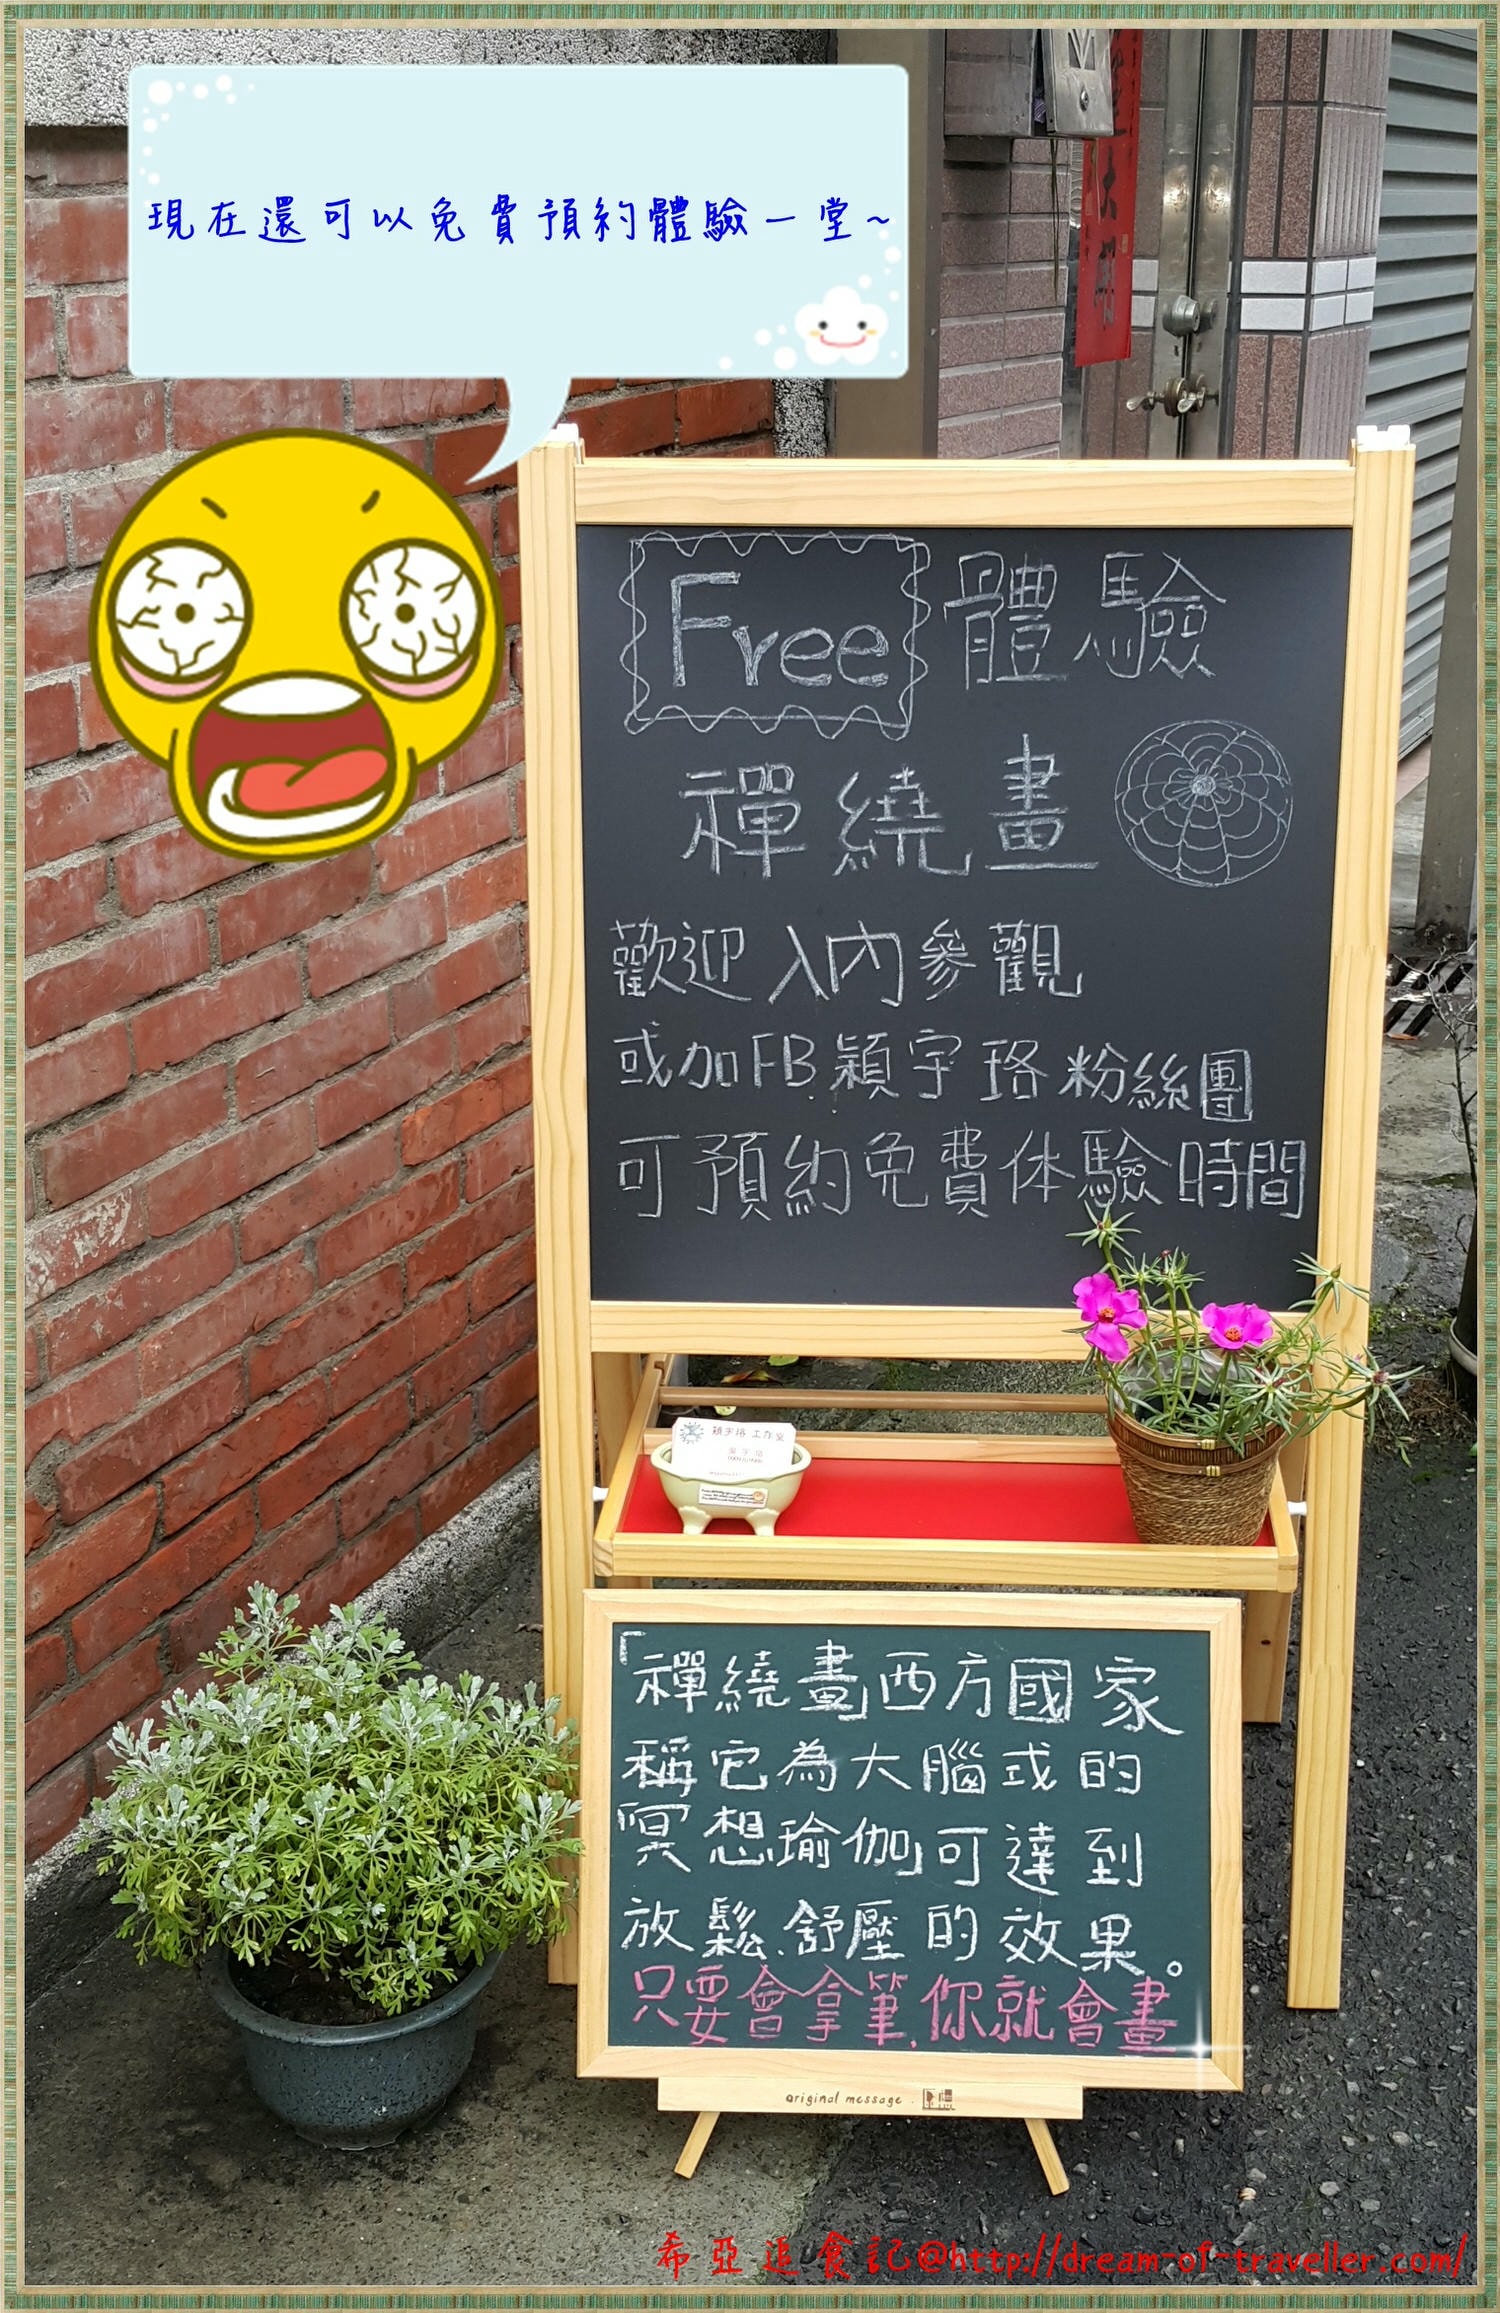 現在還可以免費預約體驗一堂~
Free 體驗
禪繞畫
歡迎入內參觀
或加FB.穎宇珞粉絲團
可預約免費体驗時間
穎宇珞 工作室
「禪繞畫」西方國家
稱它為大腦或的
冥想瑜伽」可達到
放鬆.舒壓的效果。
只要會拿筆,你就會畫
original message .
希亞追食記@http://dream-of-traveller.com/